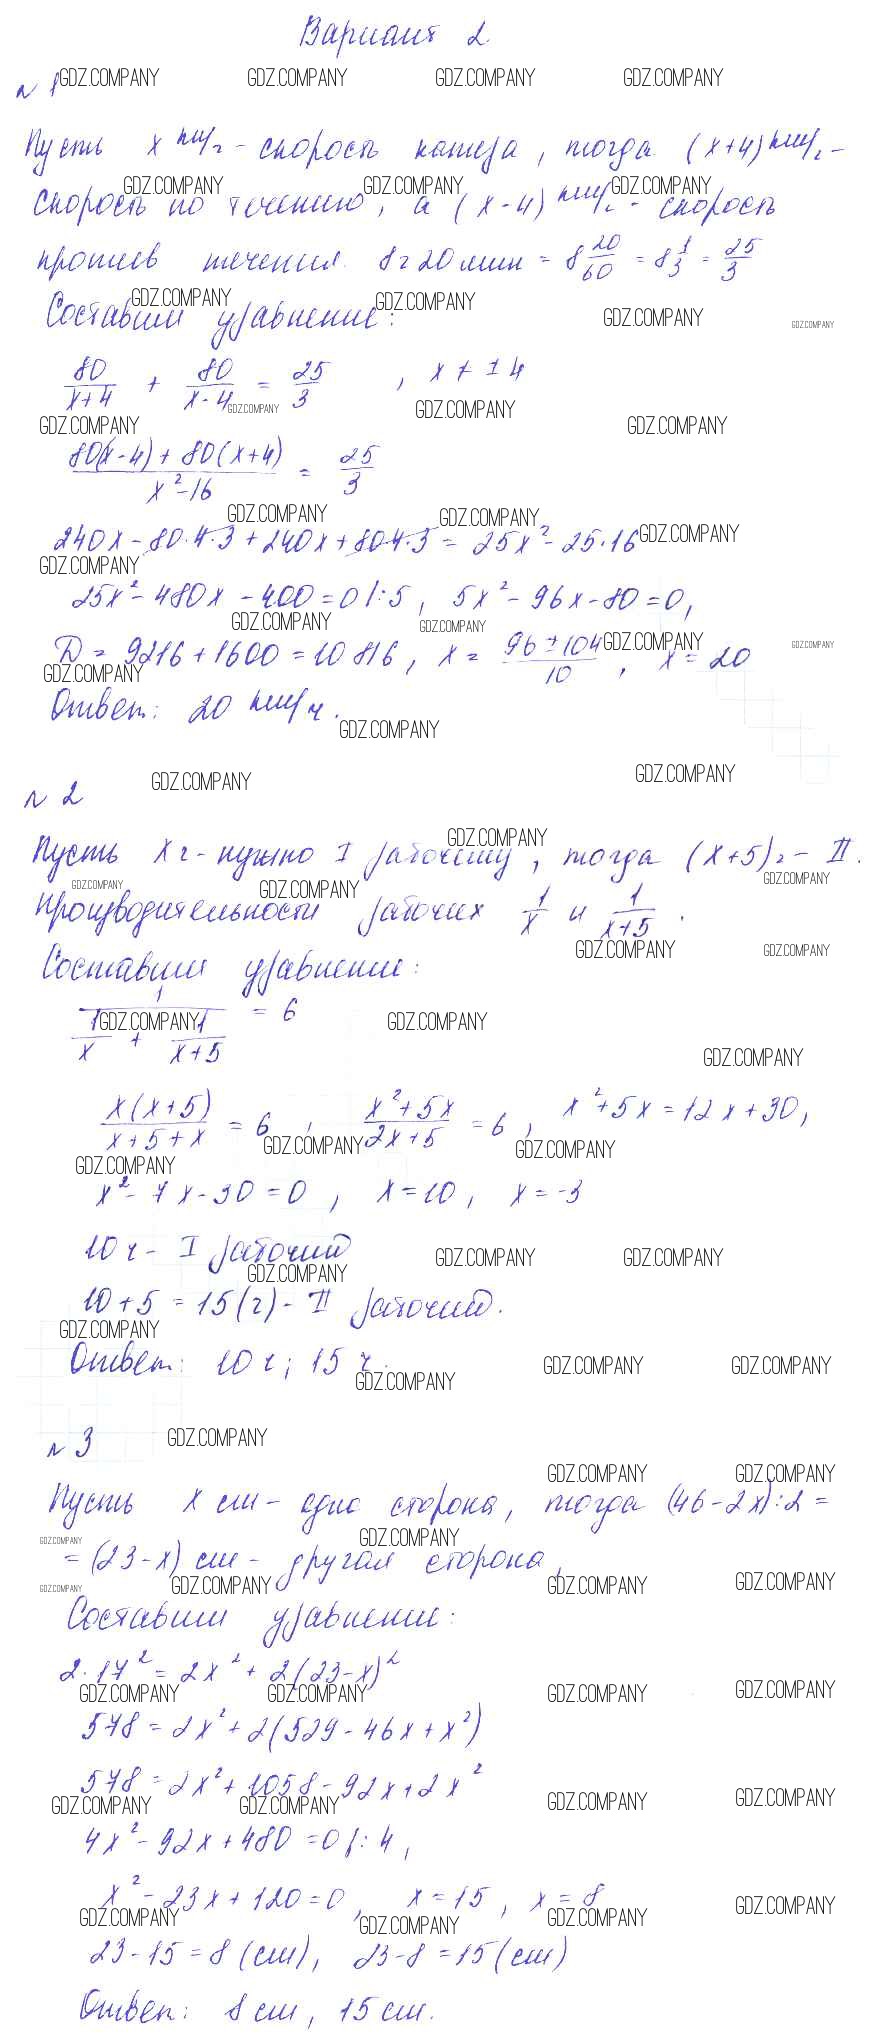 Вариант 2
GDZ.COMPANY GDZ.COMPANY GDZ.COMPANY GDZ.COMPANY
№ 1
Пусть x км/ч - скорость катера, тогда (x+4) км/ч -
GDZ.COMPANY GDZ.COMPANY GDZ.COMPANY
скорость по течению, а (x-4) км/ч - скорость
против течения. 8ч 20 мин = 8 20/60 = 8 1/3 = 25/3
GDZ.COMPANY GDZ.COMPANY GDZ.COMPANY GDZ.COMPANY
Составим уравнение:
80/(x+4) + 80/(x-4) = 25/3 , x ≠ ±4
GDZ.COMPANY GDZ.COMPANY
GDZ.COMPANY GDZ.COMPANY
(80(x-4) + 80(x+4))/(x²-16) = 25/3
GDZ.COMPANY GDZ.COMPANY GDZ.COMPANY
240x - 80·4·3 + 240x + 80·4·3 = 25x² - 25·16
GDZ.COMPANY
25x² - 480x - 400 = 0 |:5, 5x² - 96x - 80 = 0,
GDZ.COMPANY GDZ.COMPANY GDZ.COMPANY GDZ.COMPANY
D = 9216 + 1600 = 10816, x = (96 ± 104)/10, x = 20
GDZ.COMPANY
Ответ: 20 км/ч.
GDZ.COMPANY
GDZ.COMPANY GDZ.COMPANY
№ 2
GDZ.COMPANY
Пусть x ч - нужно I рабочему, тогда (x+5) ч - II.
GDZ.COMPANY GDZ.COMPANY GDZ.COMPANY
Производительности рабочих 1/x и 1/(x+5).
GDZ.COMPANY GDZ.COMPANY
Составим уравнение:
1/(1/x + 1/(x+5)) = 6
GDZ.COMPANY GDZ.COMPANY
GDZ.COMPANY
x(x+5)/(x+5+x) = 6, (x²+5x)/(2x+5) = 6, x²+5x = 12x+30,
GDZ.COMPANY GDZ.COMPANY
GDZ.COMPANY
x² - 7x - 30 = 0, x = 10, x = -3
10 ч - I рабочий
GDZ.COMPANY GDZ.COMPANY GDZ.COMPANY
10 + 5 = 15 (ч) - II рабочий.
GDZ.COMPANY
Ответ: 10 ч; 15 ч.
GDZ.COMPANY GDZ.COMPANY GDZ.COMPANY
№ 3
GDZ.COMPANY
GDZ.COMPANY GDZ.COMPANY
Пусть x см - одна сторона, тогда (46-2x):2 =
GDZ.COMPANY GDZ.COMPANY
= (23-x) см - другая сторона,
GDZ.COMPANY GDZ.COMPANY GDZ.COMPANY GDZ.COMPANY
Составим уравнение:
2·17² = 2x² + 2(23-x)²
GDZ.COMPANY GDZ.COMPANY GDZ.COMPANY GDZ.COMPANY
578 = 2x² + 2(529 - 46x + x²)
578 = 2x² + 1058 - 92x + 2x²
GDZ.COMPANY GDZ.COMPANY GDZ.COMPANY GDZ.COMPANY
4x² - 92x + 480 = 0 |:4,
x² - 23x + 120 = 0, x = 15, x = 8
GDZ.COMPANY GDZ.COMPANY GDZ.COMPANY GDZ.COMPANY
23-15 = 8 (см), 23-8 = 15 (см)
Ответ: 8 см, 15 см.